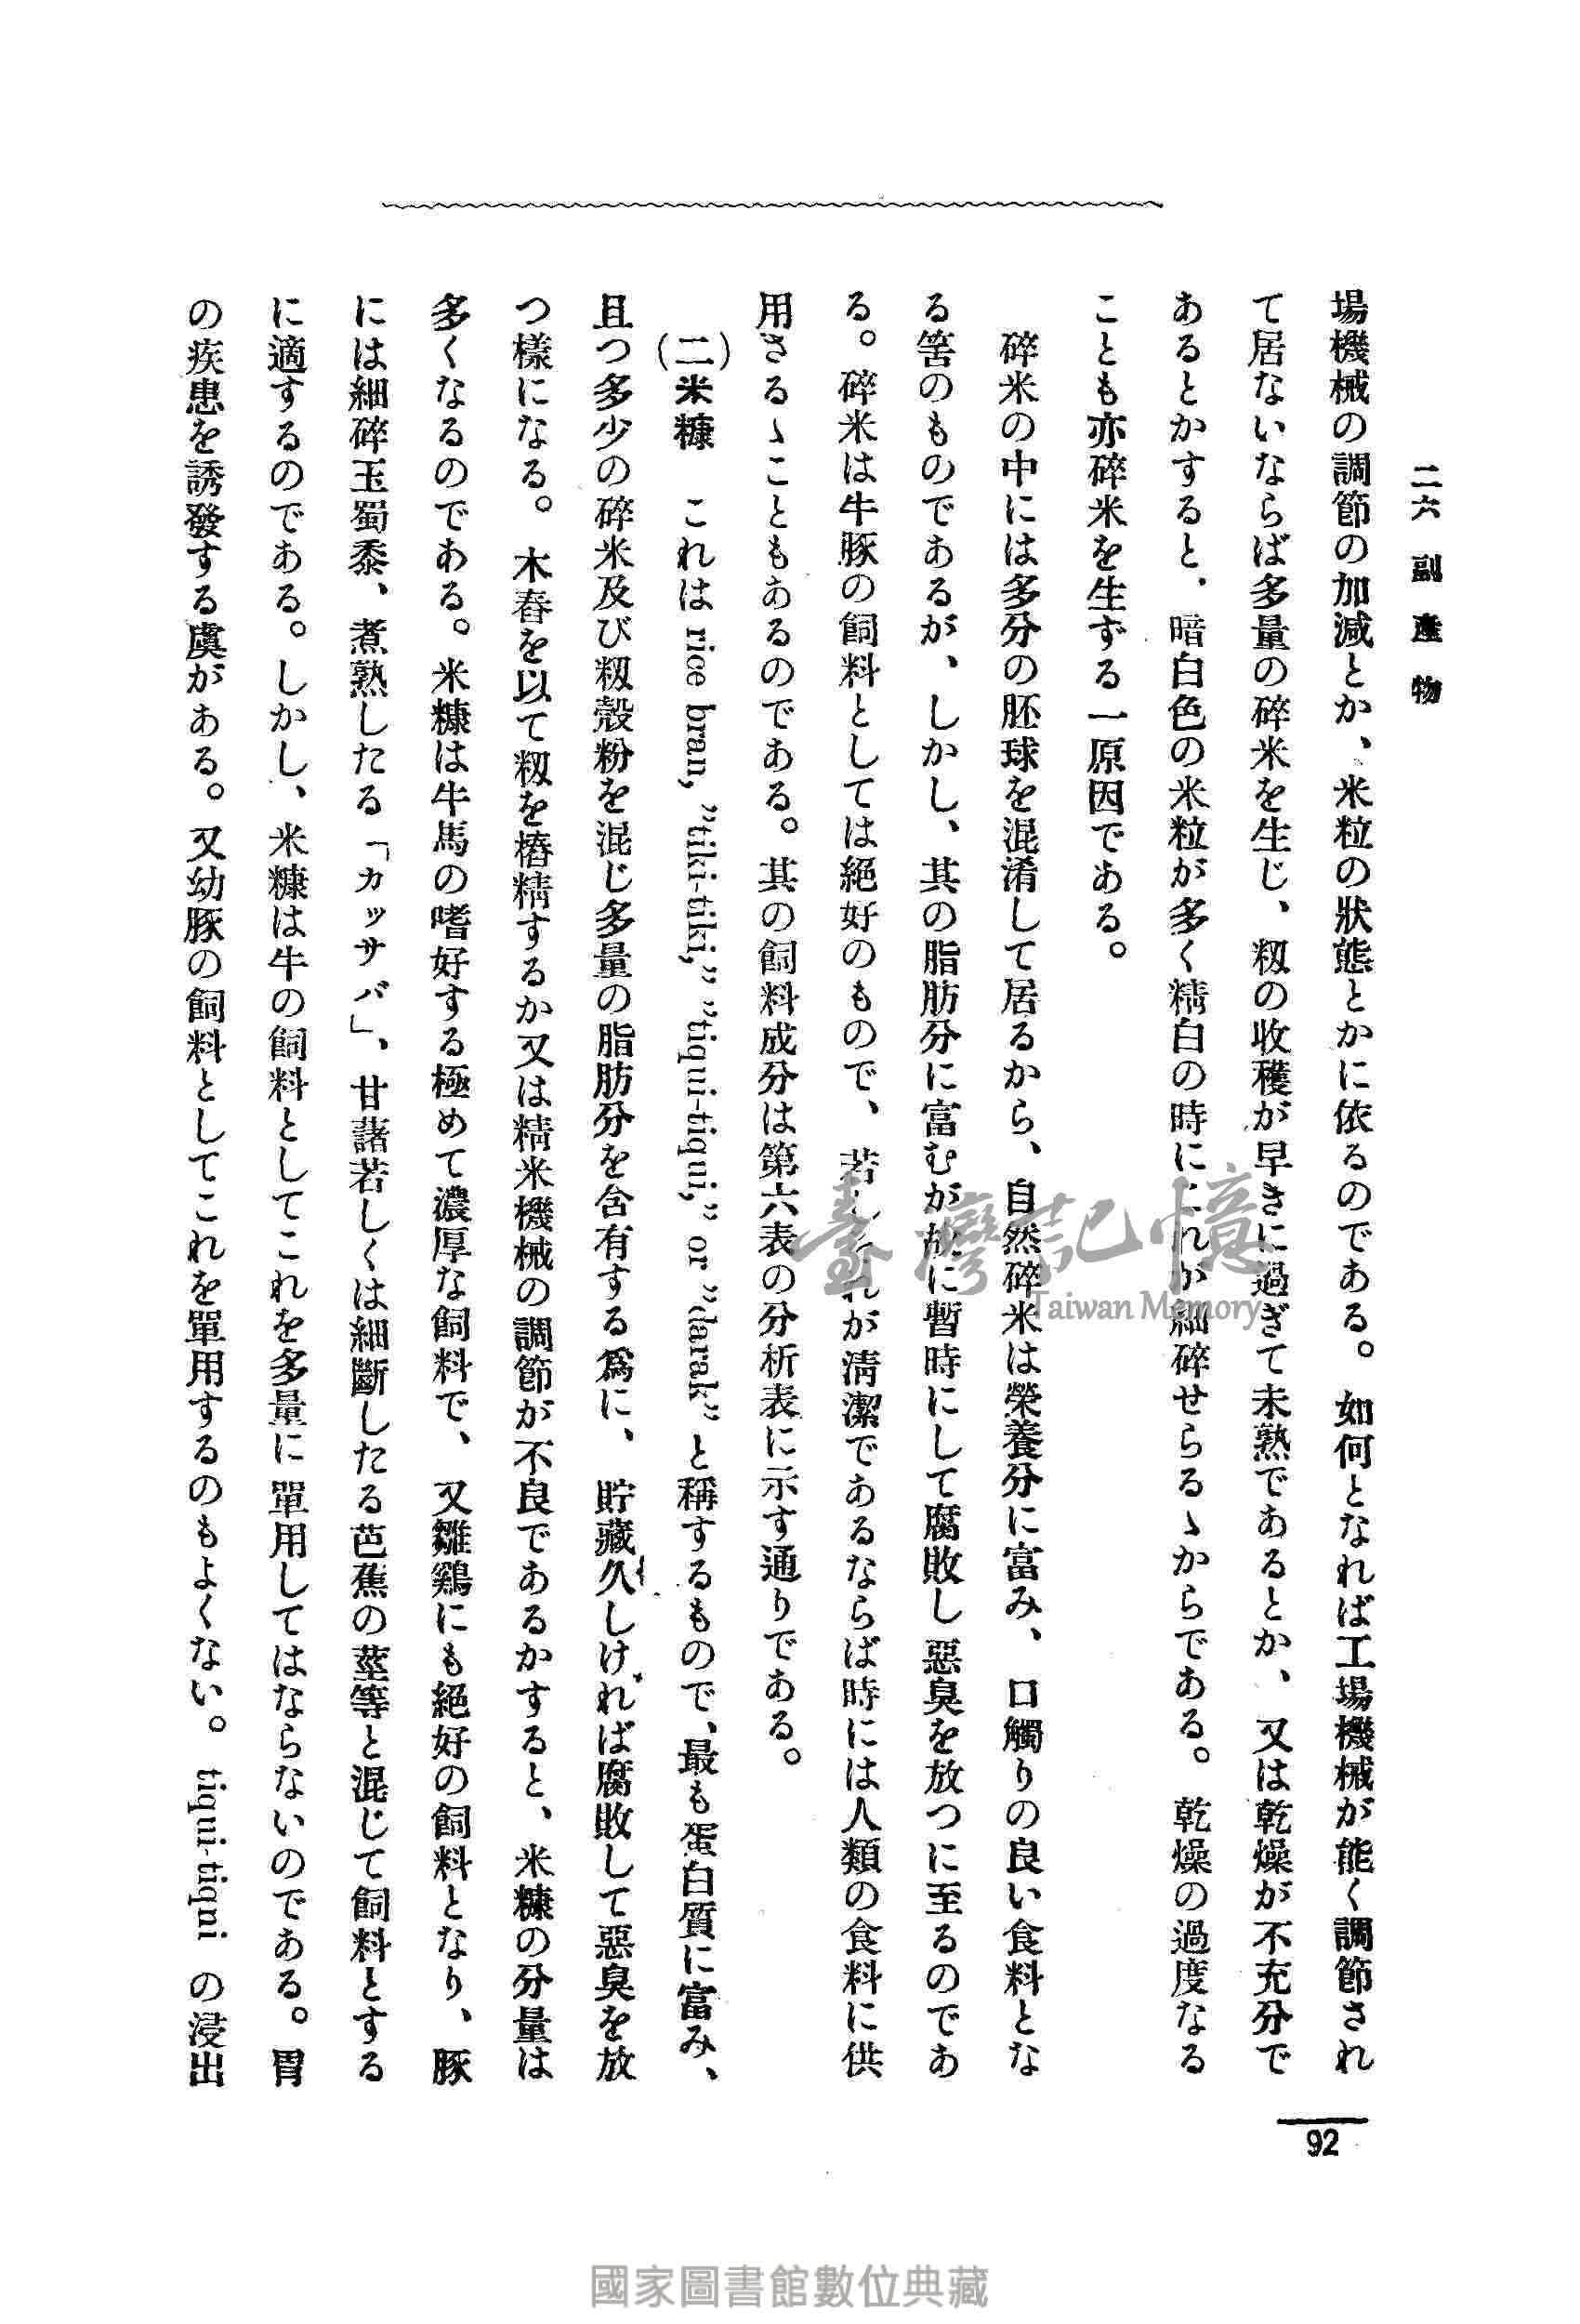 二六 副產物
場機械の調節の加減とか、米粒の狀態とかに依るのである。如何となれば工場機械が能く調節され
て居ないならば多量の碎米を生じ、籾の收穫が早きに過ぎて未熟であるとか、又は乾燥が不充分で
あるとかすると、暗白色の米粒が多く精白の時にこれが細碎せらるゝからである。乾燥の過度なる
ことも亦碎米を生ずる一原因である。
碎米の中には多分の胚球を混淆して居るから、自然碎米は榮養分に富み、口觸りの良い食料とな
る筈のものであるが、しかし、其の脂肪分に富むが故に暫時にして腐敗し惡臭を放つに至るのであ
る。碎米は牛豚の飼料としては絕好のもので、若しそれが淸潔であるならば時には人類の食料に供
用さるゝこともあるのである。其の飼料成分は第六表の分析表に示す通りである。
(二)米糠 これは rice bran, ”tiki-tiki,” ”tiqui-tiqui,” or ”darak” と稱するもので、最も蛋白質に富み、
且つ多少の碎米及び籾殼粉を混じ多量の脂肪分を含有する爲に、貯藏久しければ腐敗して惡臭を放
つ樣になる。木舂を以て籾を樁精するか又は精米機械の調節が不良であるかすると、米糠の分量は
多くなるのである。米糠は牛馬の嗜好する極めて濃厚な飼料で、又雛鷄にも絕好の飼料となり、豚
には細碎玉蜀黍、煮熟したる「カッサバ」、甘藷若しくは細斷したる芭蕉の莖等と混じて飼料とする
に適するのである。しかし、米糠は牛の飼料としてこれを多量に單用してはならないのである。胃
の疾患を誘發する虞がある。又幼豚の飼料としてこれを單用するのもよくない。tiqui-tiqui の浸出
92
臺灣記憶
Taiwan Memory
國家圖書館數位典藏